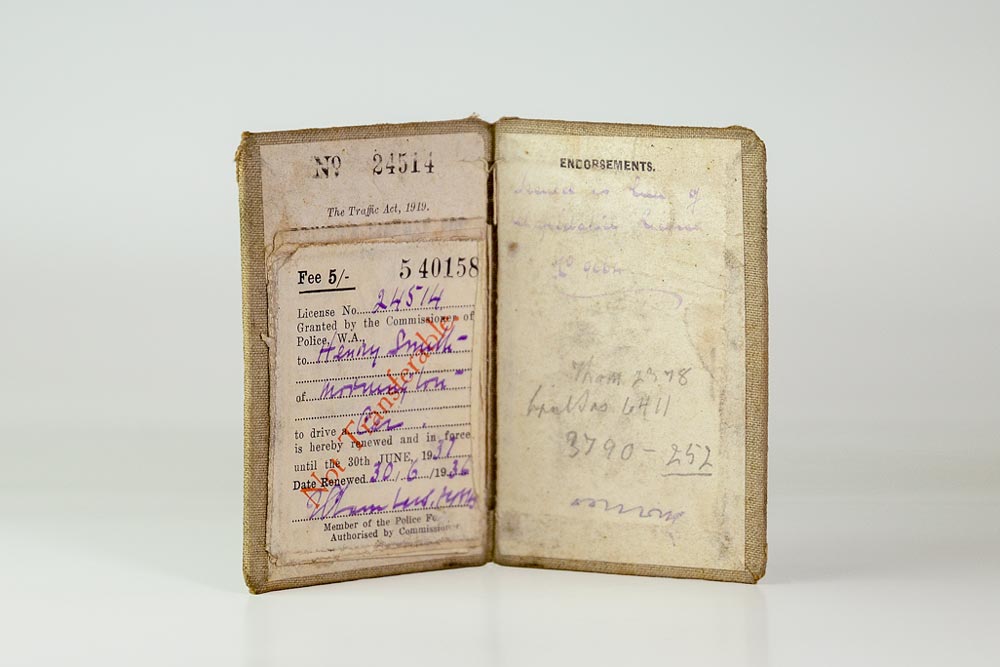 No 24514
The Traffic Act, 1919.
Fee 5/- 540158
License No. 24514
Granted by the Commissioner of
Police, W.A.,
to Henry Smith
of Mornington
to drive a Car
is hereby renewed and in force
until the 30th JUNE, 1937
Date Renewed 30/6/1936
Member of the Police
Authorised by Commissioner
Not Transferable.
ENDORSEMENTS.
Issued in lieu of
License
No
Thom 2378
6411
3790-252